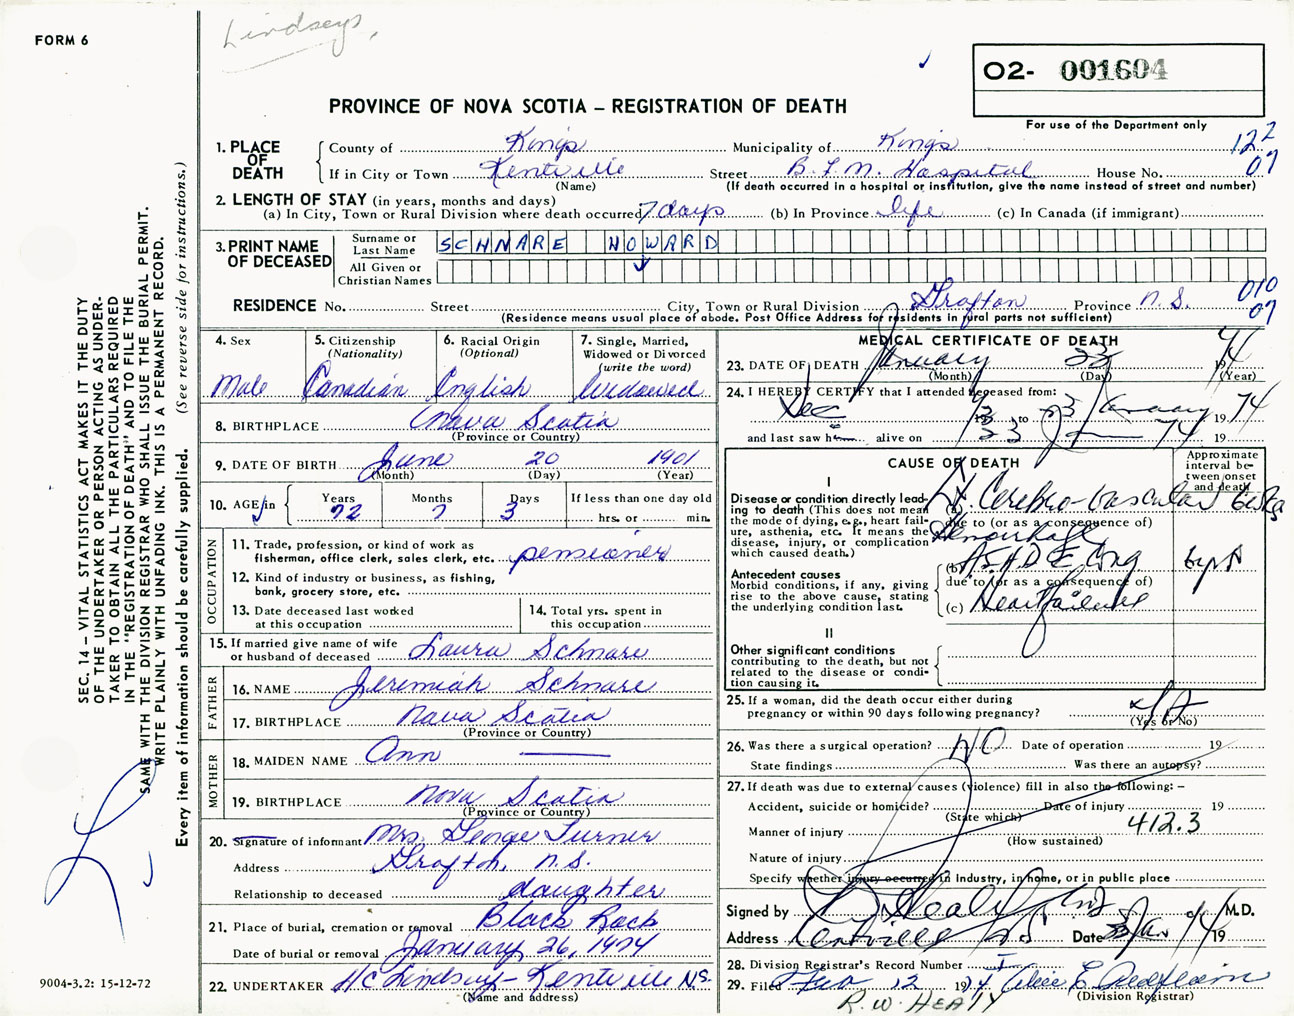 Lindsey's
FORM 6
O2- 001604
PROVINCE OF NOVA SCOTIA – REGISTRATION OF DEATH
For use of the Department only
122
07
1. PLACE OF DEATH
County of King's Municipality of Kings
If in City or Town Kentville Street B.F.M. Hospital House No.
(Name) (If death occurred in a hospital or institution, give the name instead of street and number)
2. LENGTH OF STAY (in years, months and days)
(a) In City, Town or Rural Division where death occurred 7 days (b) In Province life (c) In Canada (if immigrant)
3. PRINT NAME OF DECEASED
Surname or Last Name SCHNARE HOWARD
All Given or Christian Names
RESIDENCE No. Street City, Town or Rural Division Grafton Province N.S.
010
07
(Residence means usual place of abode. Post Office Address for residents in rural parts not sufficient)
4. Sex
Male
5. Citizenship
(Nationality)
Canadian
6. Racial Origin
(Optional)
English
7. Single, Married,
Widowed or Divorced
(write the word)
Widowed
8. BIRTHPLACE Nova Scotia
(Province or Country)
9. DATE OF BIRTH June 20 1901
(Month) (Day) (Year)
10. AGE in Years 72 Months 7 Days 3
If less than one day old
hrs. or min.
OCCUPATION
11. Trade, profession, or kind of work as
fisherman, office clerk, sales clerk, etc. pensioner
12. Kind of industry or business, as fishing,
bank, grocery store, etc.
13. Date deceased last worked
at this occupation
14. Total yrs. spent in
this occupation
15. If married give name of wife
or husband of deceased Laura Schnare
FATHER
16. NAME Jeremiah Schnare
17. BIRTHPLACE Nova Scotia
(Province or Country)
MOTHER
18. MAIDEN NAME Ann
19. BIRTHPLACE Nova Scotia
(Province or Country)
20. Signature of informant Mrs. George Turner
Address Grafton, N.S.
Relationship to deceased daughter
21. Place of burial, cremation or removal Black Rock
Date of burial or removal January 26, 1974
22. UNDERTAKER H C Lindsay - Kentville N.S.
(Name and address)
MEDICAL CERTIFICATE OF DEATH
23. DATE OF DEATH January 23 1974
(Month) (Day) (Year)
24. I HEREBY CERTIFY that I attended deceased from:
Dec 73 to 23 January 1974
and last saw h alive on 23 J 74 19
CAUSE OF DEATH
Approximate interval between onset and death
I
Disease or condition directly leading to death (This does not mean the mode of dying, e.g., heart failure, asthenia, etc. It means the disease, injury, or complication which caused death.)
(a) Cerebro-Vascular
due to (or as a consequence of)
Hemorrhage
Antecedent causes
Morbid conditions, if any, giving rise to the above cause, stating the underlying condition last.
(b) ASHD E Cong
due to (or as a consequence of)
(c) Heart failure
II
Other significant conditions
contributing to the death, but not related to the disease or condition causing it.
25. If a woman, did the death occur either during
pregnancy or within 90 days following pregnancy?
(Yes or No)
26. Was there a surgical operation? NO Date of operation 19
State findings Was there an autopsy?
27. If death was due to external causes (violence) fill in also the following: –
Accident, suicide or homicide? Date of injury 19
(State which)
Manner of injury 412.3
(How sustained)
Nature of injury
Specify whether injury occurred in industry, in home, or in public place
Signed by Healy MD M.D.
Address Kentville NS Date 23 Jan 74 19
28. Division Registrar's Record Number
29. Filed Feb 12 1974
(Division Registrar)
R.W. HEALY
SEC. 14 – VITAL STATISTICS ACT MAKES IT THE DUTY
OF THE UNDERTAKER OR PERSON ACTING AS UNDER-
TAKER TO OBTAIN ALL THE PARTICULARS REQUIRED
IN THE "REGISTRATION OF DEATH" AND TO FILE THE
SAME WITH THE DIVISION REGISTRAR WHO SHALL ISSUE THE BURIAL PERMIT.
WRITE PLAINLY WITH UNFADING INK. THIS IS A PERMANENT RECORD.
Every item of information should be carefully supplied. (See reverse side for instructions.)
9004-3.2: 15-12-72